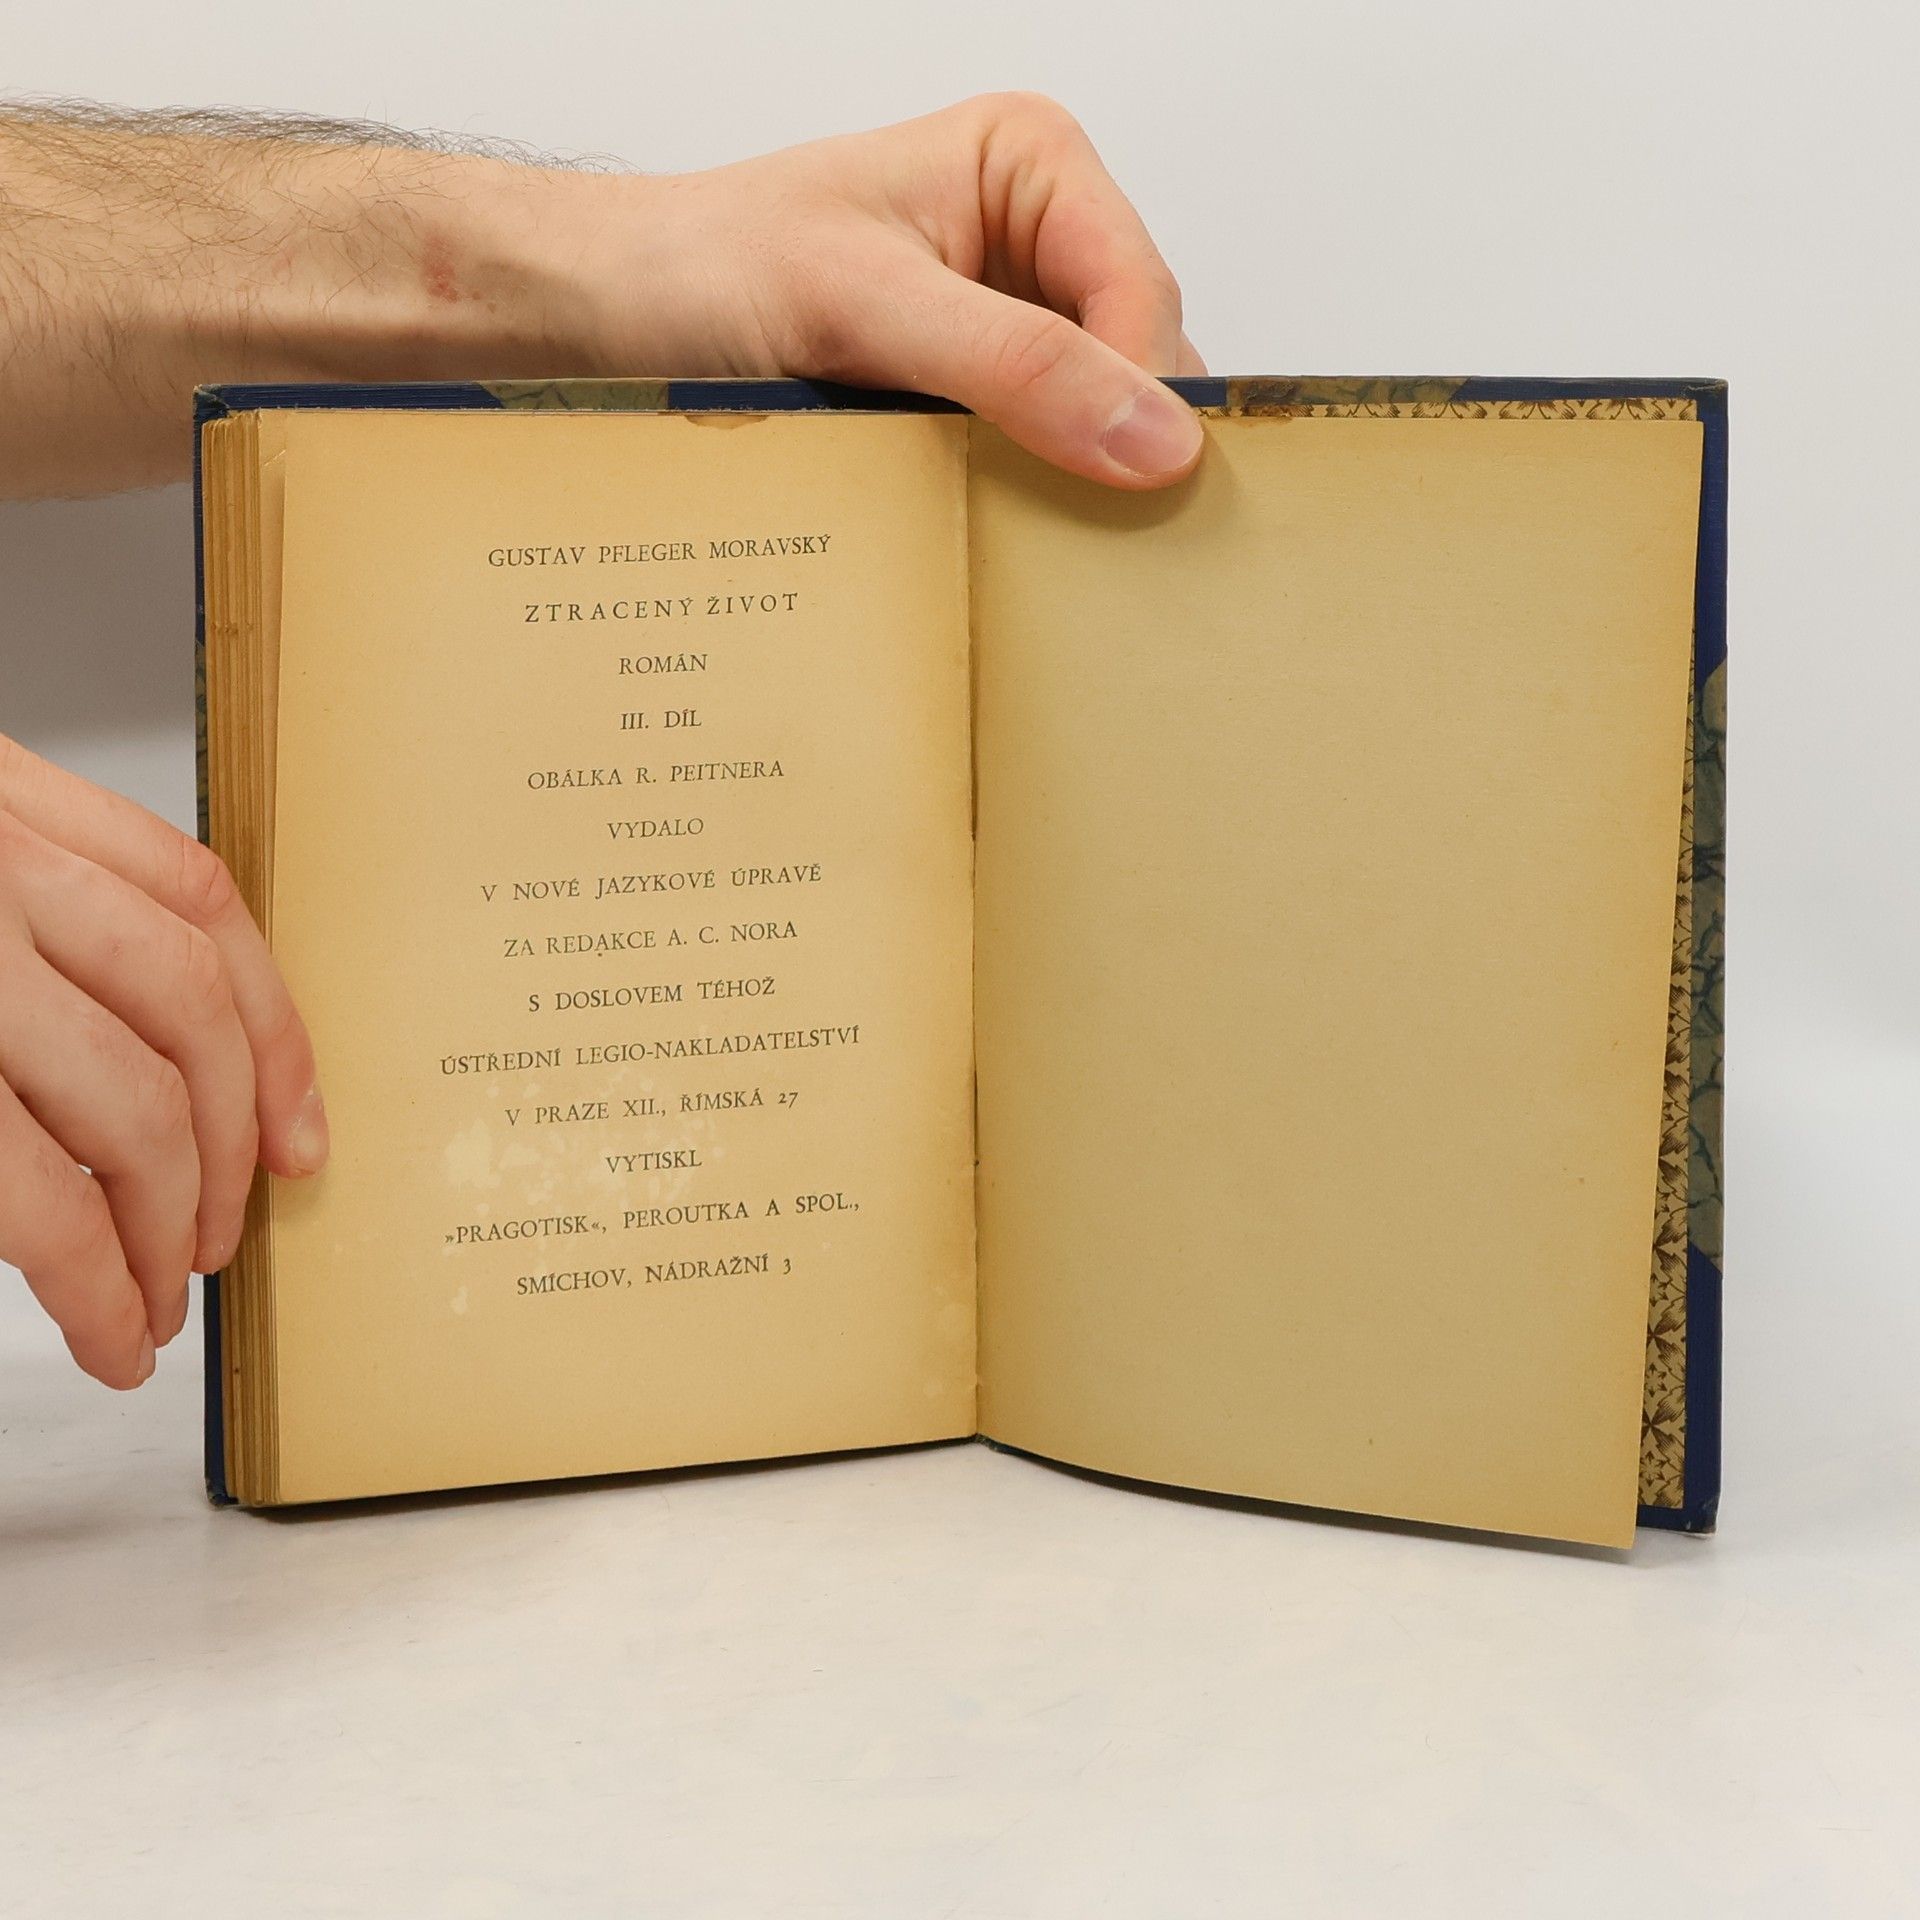 GUSTAV PFLEGER MORAVSKÝ
ZTRACENÝ ŽIVOT
ROMÁN
III. DÍL
OBÁLKA R. PEITNERA
VYDALO
V NOVÉ JAZYKOVÉ ÚPRAVĚ
ZA REDAKCE A. C. NORA
S DOSLOVEM TÉHOŽ
ÚSTŘEDNÍ LEGIO-NAKLADATELSTVÍ
V PRAZE XII., ŘÍMSKÁ 27
VYTISKL
»PRAGOTISK«, PEROUTKA A SPOL.,
SMÍCHOV, NÁDRAŽNÍ 3